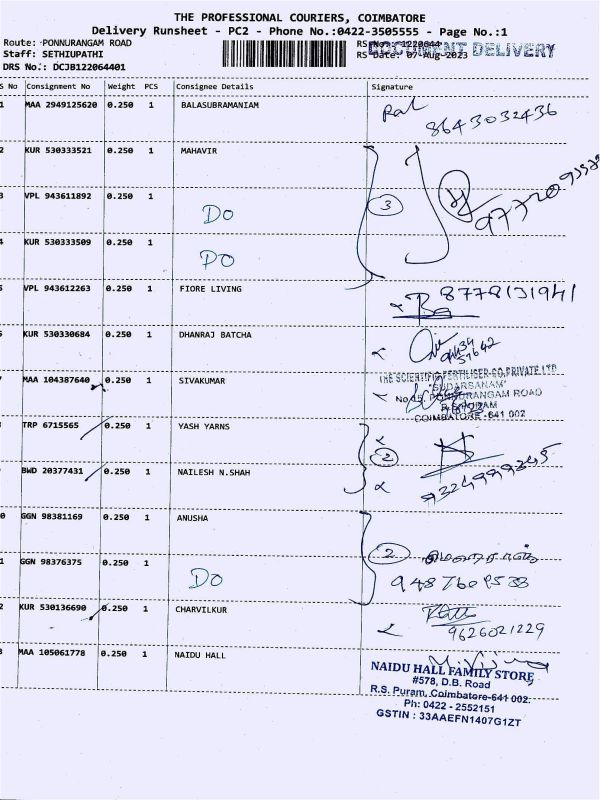 THE PROFESSIONAL COURIERS, COIMBATORE
Delivery Runsheet - PC2 - Phone No.:0422-3505555 - Page No.:1
Route: PONNURANGAM ROAD
Staff: SETHIUPATHI
DRS No.: DCJB122064401
RS Date: 07-Aug-2023
DOCUMENT DELIVERY
S No Consignment No Weight PCS Consignee Details Signature
1 MAA 2949125620 0.250 1 BALASUBRAMANIAM
8643032436
2 KUR 530333521 0.250 1 MAHAVIR
3 VPL 943611892 0.250 1 DO 3
4 KUR 530333509 0.250 1 DO
5 VPL 943612263 0.250 1 FIORE LIVING 8778131941
6 KUR 530330684 0.250 1 DHANRAJ BATCHA
7 MAA 104387640 0.250 1 SIVAKUMAR
THE SCIENTIFIC FERTILISER CO. PRIVATE LTD
"SUDARSANAM"
No.45, PONNURANGAM ROAD
R.S.PURAM
COIMBATORE -641 002
8 TRP 6715565 0.250 1 YASH YARNS
2
9 BWD 20377431 0.250 1 NAILESH N.SHAH
9324999245
0 GGN 98381169 0.250 1 ANUSHA
2
1 GGN 98376375 0.250 1 DO
9487609533
2 KUR 530136690 0.250 1 CHARVILKUR
9626021229
3 MAA 105061778 0.250 1 NAIDU HALL
NAIDU HALL FAMILY STORE
#578, D.B. Road
R.S. Puram, Coimbatore-641 002.
Ph: 0422 - 2552151
GSTIN : 33AAEFN1407G1ZT